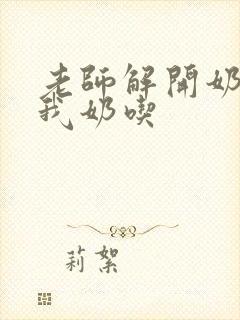 老師解開奶
我奶喫
莉絮